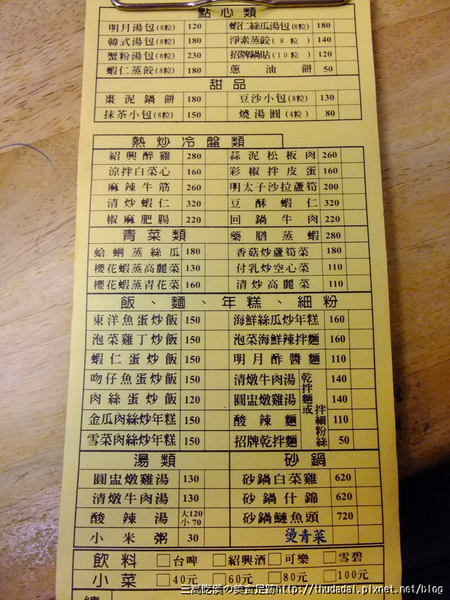 點心類
明月湯包(8粒) 120 蝦仁絲瓜湯包(8粒) 180
韓式湯包(8粒) 180 淨素蒸餃(8粒) 180
蟹粉湯包(8粒) 230 招牌鍋貼(10粒) 120
蝦仁蒸餃(8粒) 180 蔥油餅 50
甜品
棗泥鍋餅 180 豆沙小包(8粒) 130
抹茶小包(8粒) 180 燒湯圓(4粒) 80
熱炒冷盤類
紹興醉雞 280 蒜泥松板肉 260
涼拌白菜心 160 彩椒拌皮蛋 160
麻辣牛筋 260 明太子沙拉蘆筍 200
清炒蝦仁 320 豆酥蝦仁 320
椒麻肥腸 220 回鍋牛肉 220
青菜類 藥膳蒸蝦 280
蛤蜊蒸絲瓜 180 香菇炒蘆筍菜 180
櫻花蝦蒸高麗菜 130 付乳炒空心菜 110
櫻花蝦蒸青花菜 160 清炒高麗菜 110
飯、麵、年糕、細粉
東洋魚蛋炒飯 150 海鮮絲瓜炒年糕 160
泡菜雞丁炒飯 150 泡菜海鮮辣拌麵 160
蝦仁蛋炒飯 150 明月酢醬麵 110
吻仔魚蛋炒飯 150 清燉牛肉湯 140
肉絲蛋炒飯 120 圓盅燉雞湯 140
金瓜肉絲炒年糕 150 酸辣麵 110
雪菜肉絲炒年糕 150 招牌乾拌麵 50
乾拌麵或拌細粉絲
湯類 砂鍋
圓盅燉雞湯 130 砂鍋白菜雞 620
清燉牛肉湯 130 砂鍋什錦 620
酸辣湯 大120 小70 砂鍋鰱魚頭 720
小米粥 30 燙青菜
飲料 □台啤 □紹興酒 □可樂 □雪碧
小菜 □40元 □60元 □80元 □100元
三高吃貨の美食足跡http://thudadai.pixnet.net/blog